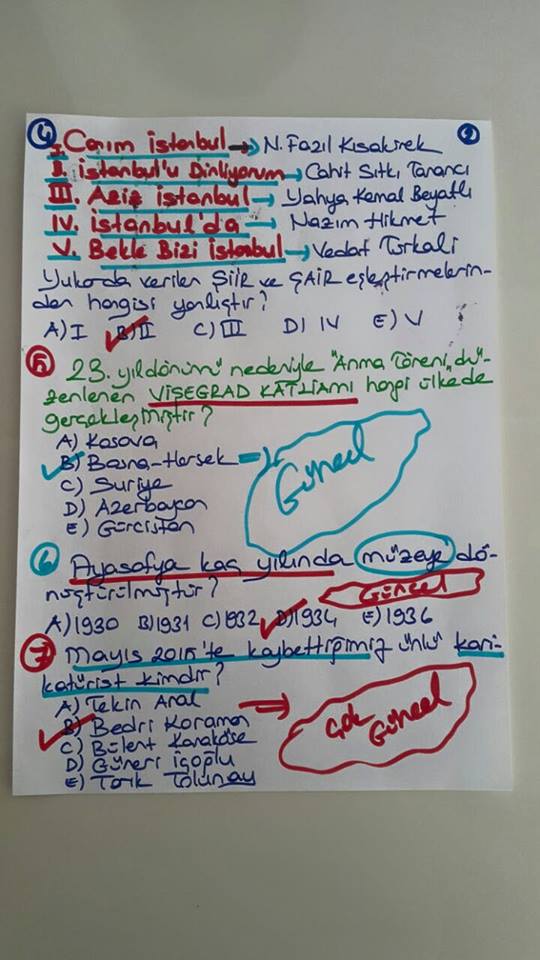 4
2
I. Canım İstanbul → N. Fazıl Kısakürek
II. İstanbul'u Dinliyorum → Cahit Sıtkı Tarancı
III. Aziz İstanbul → Yahya Kemal Beyatlı
IV. İstanbul'da → Nazım Hikmet
V. Bekle Bizi İstanbul → Vedat Türkali
Yukarda verilen ŞİİR ve ŞAİR eşleştirmelerin-
den hangisi yanlıştır?
A) I B) II C) III D) IV E) V
5 23. yıldönümü nedeniyle "Anma Töreni" dü-
zenlenen VİŞEGRAD KATLİAMI hangi ülkede
gerçekleşmiştir?
A) Kosova
B) Bosna-Hersek ⇒ Güncel
C) Suriye
D) Azerbaycan
E) Gürcistan
6 Ayasofya kaç yılında müzeye dö-
nüştürülmüştür? Güncel
A) 1930 B) 1931 C) 1932 D) 1934 E) 1936
7 Mayıs 2015'te kaybettiğimiz ünlü kari-
katürist kimdir?
A) Tekin Aral ⇒ Çok Güncel
B) Bedri Koraman
C) Bülent Karaköse
D) Güneri İçoğlu
E) Tarık Tolunay